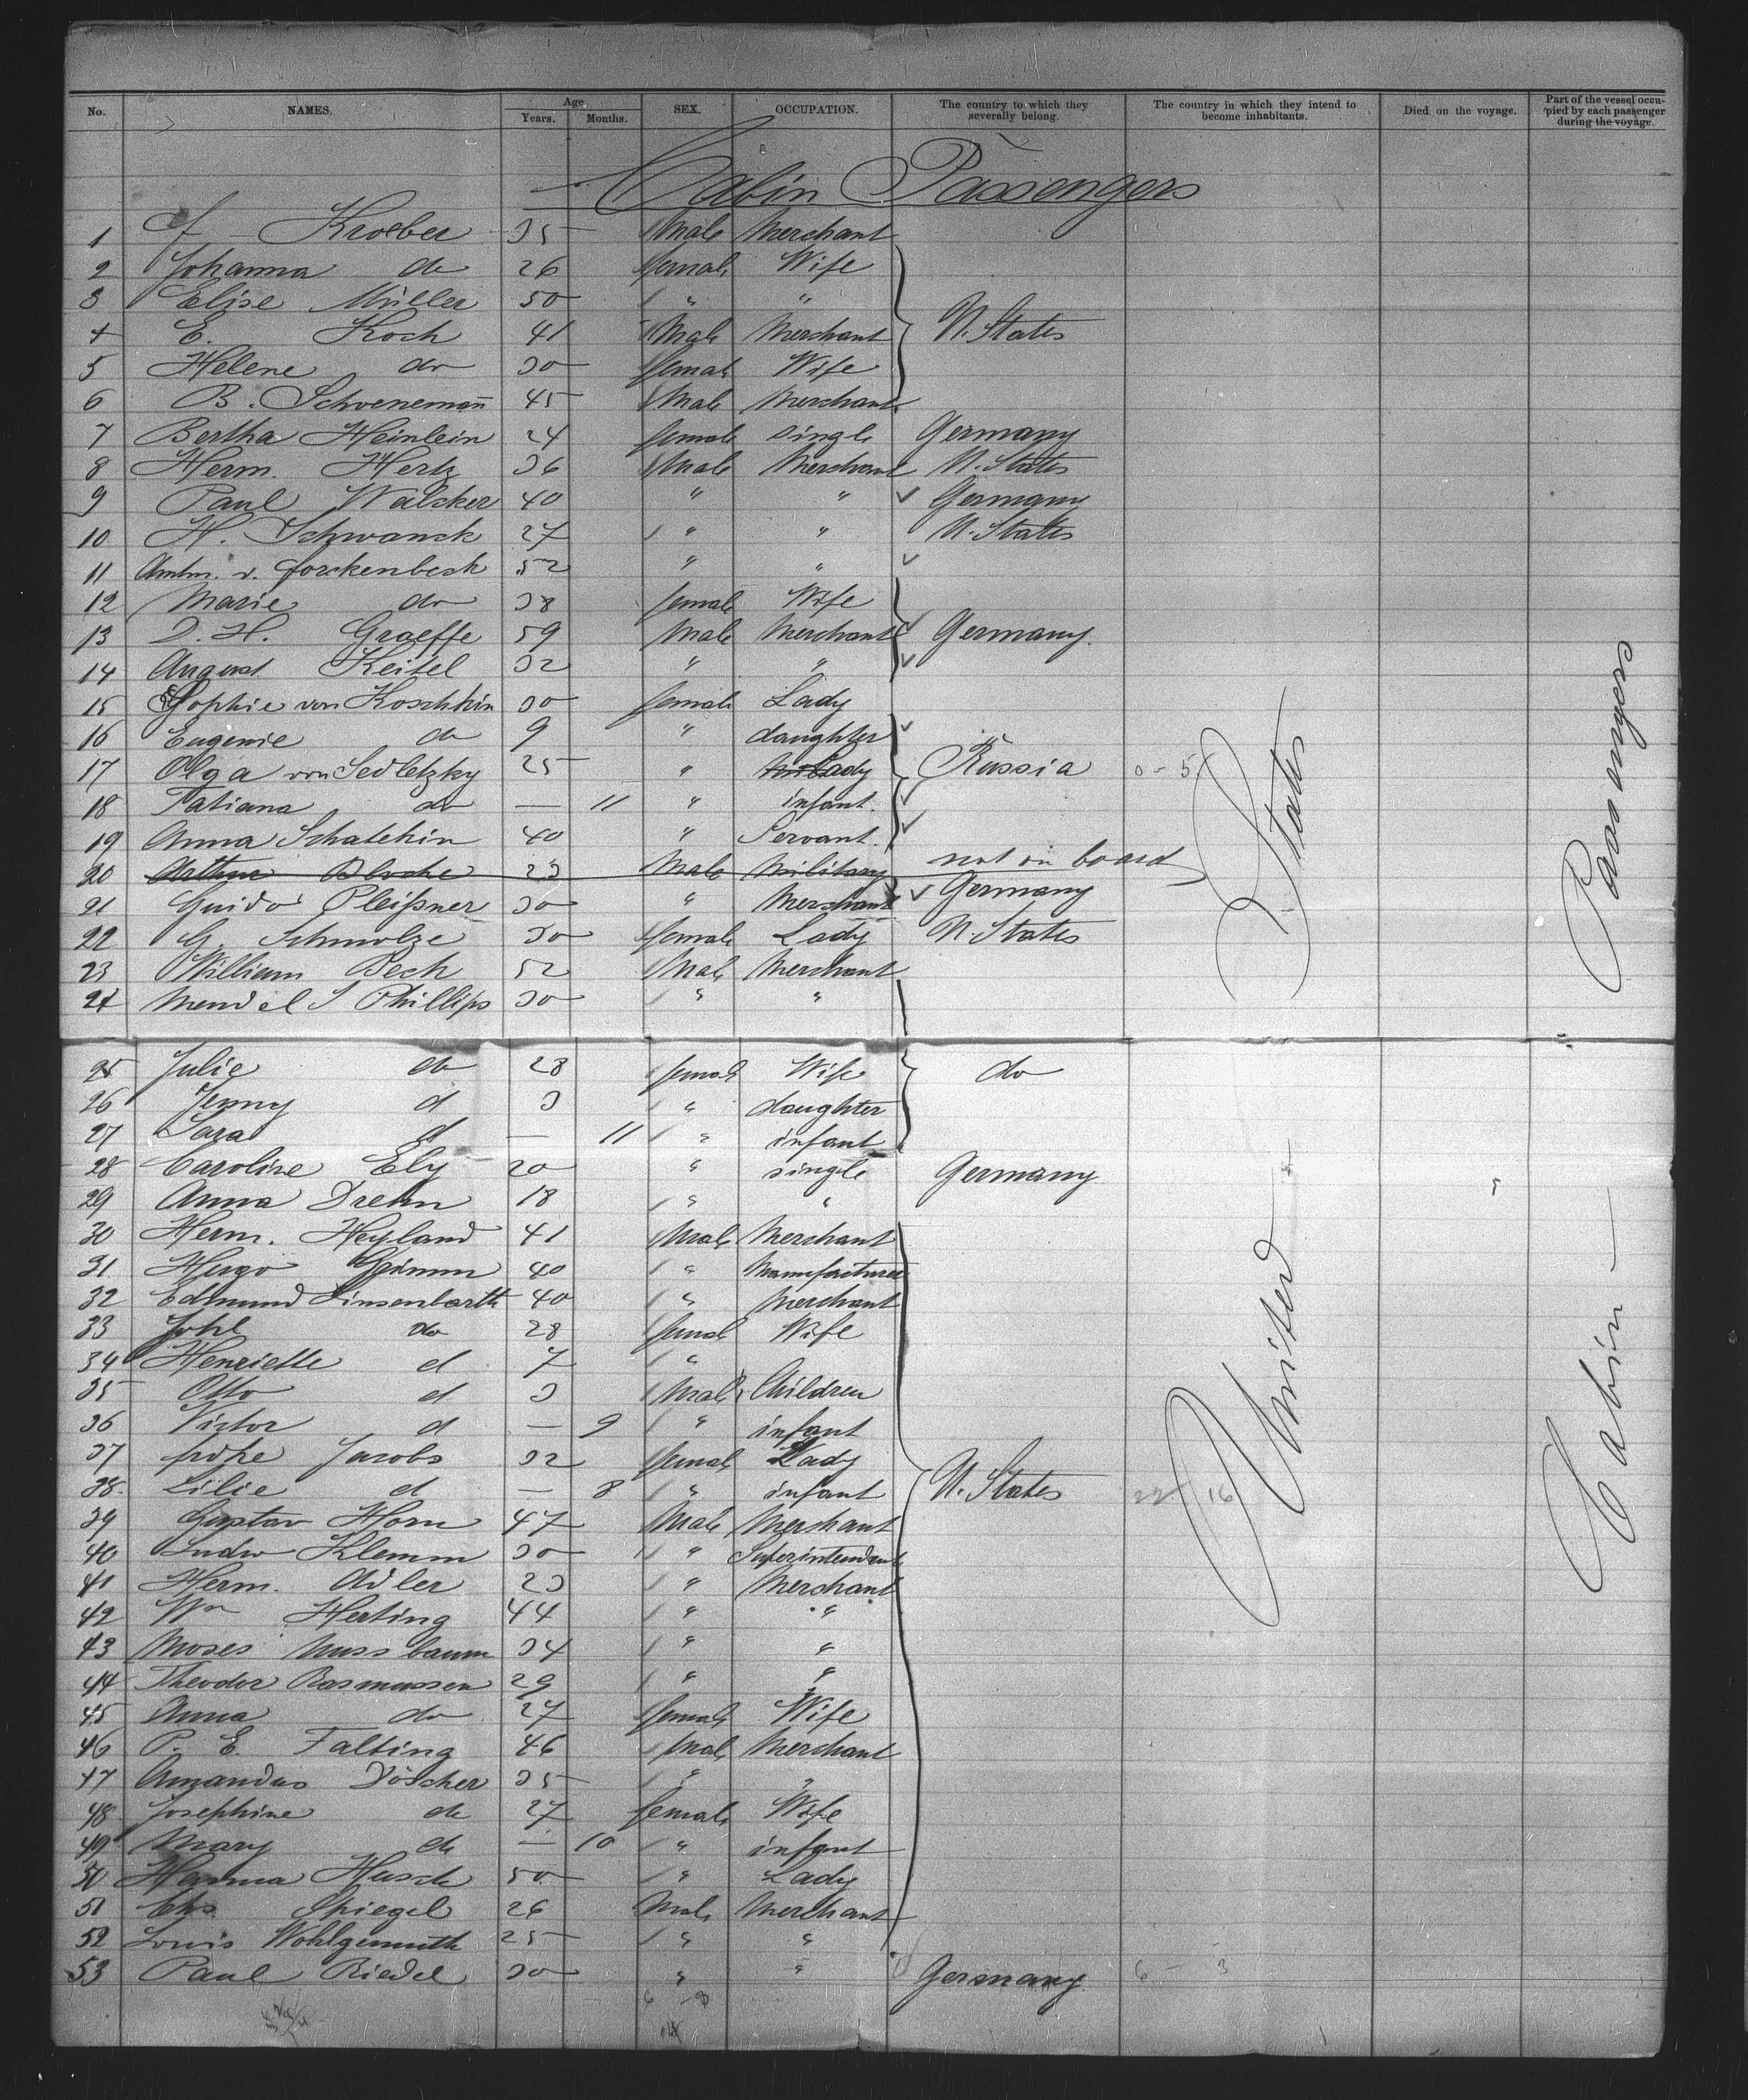 No. NAMES. Age Years. Months. SEX. OCCUPATION. The country to which they severally belong. The country in which they intend to become inhabitants. Died on the voyage. Part of the vessel occupied by each passenger during the voyage.
Cabin Passengers
1 Kroeber 35 Male Merchant
2 Johanna do 26 female Wife
3 Elise Müller 50 " "
4 E. Koch 41 Male Merchant U. States
5 Helene do 30 female Wife
6 B. Schoenemann 45 Male Merchant
7 Bertha Heinlein 24 female single Germany
8 Herm. Hertz 36 Male Merchant U. States
9 Paul Walcker 40 " " Germany
10 H. Schwanck 27 " " U. States
11 v. Forckenbeck 52 " "
12 Marie do 38 female Wife
13 D. H. Graeffe 59 Male Merchant Germany.
14 August Keitel 32 " "
15 Sophie von Koschkin 30 female Lady
16 Eugenie do 9 " daughter
17 Olga von Sedletzky 25 " Lady Russia 0 - 5
18 Tatiana do — 11 " infant.
19 Anna Schatchin 40 " Servant.
20 Bloche 23 Male Military not on board
21 Guido Pleißner 30 " Merchant Germany
22 G. Schmolze 30 female Lady U. States
23 William Bech 52 Male Merchant
24 Mendel S Phillips 30 " "
25 Julie do 28 female Wife do
26 Jenny d 3 " daughter
27 Sara d — 11 " infant
28 Caroline Ely 20 " single Germany
29 Anna Drehn 18 " "
30 Herm. Heyland 41 Male Merchant
31 Hugo Grimm 40 " Manufacturer
32 Edmund Linsenbarth 40 " Merchant
33 do 28 female Wife
34 Henriette d 7 "
35 Otto d 3 Male Children
36 Victor d — 9 " infant
37 Jacobs 32 female Lady
38. Lilie d — 8 " infant U. States 22 16
39 Gustav Horn 47 Male Merchant
40 Ludw Klemm 30 " Superintendent
41 Herm. Adler 23 " Merchant
42 Wm Herting 44 " "
43 Moses Nussbaum 34 " "
44 Theodor Rasmussen 29 " "
45 Anna do 27 female Wife
46 P. E. Falting 46 Male Merchant
47 Amandus Döscher 35 " "
48 Josephine do 27 female Wife
49 Mary do — 10 " infant
50 Hanna Husch 50 " Lady
51 Chs Spiegel 26 Male Merchant
52 Louis Wohlgemuth 25 " "
53 Paul Riedel 30 " " Germany 6 - 3
United States
Cabin Passengers